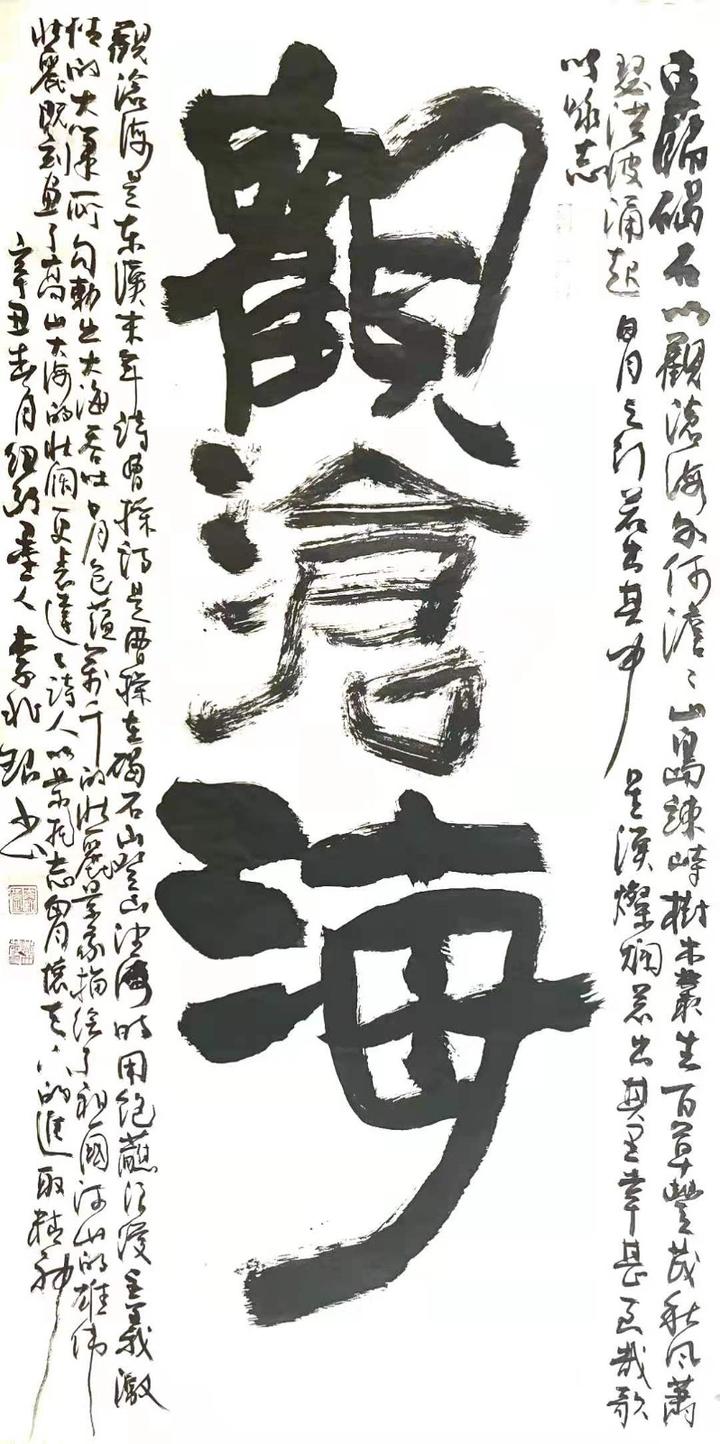 東臨碣石以觀滄海水何澹〻山島竦峙樹木叢生百草豐茂秋風蕭
瑟洪波涌起日月之行若出其中星漢燦爛若出其里幸甚至哉歌
以詠志
觀滄海
觀滄海是东漢末年詩曹操詩是曹操在碣石山登山望海时用飽蘸浪漫主義激
情的大筆所勾勒出大海吞吐日月包蘊萬千的壯麗景象描繪了祖國河山的雄偉
壯麗既刻畫了高山大海的壯闊更表達了詩人以景托志胸懷天下的進取精神
辛丑春月墨人李书